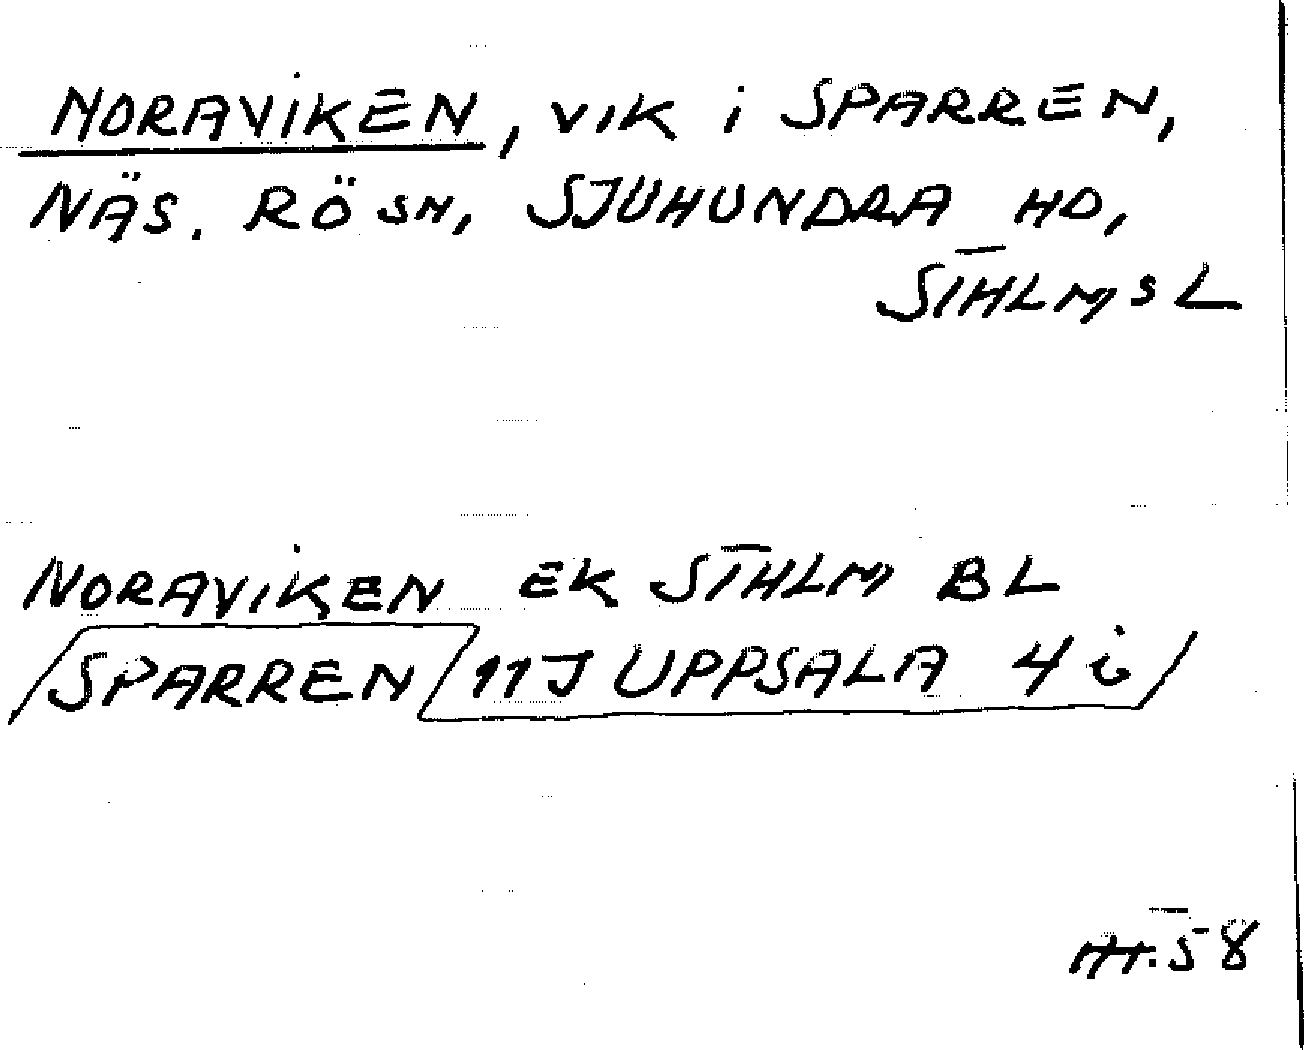 NORAVIKEN, VIK i SPARREN,
NÄS. RÖ SN, SJUHUNDRA HD,
STHLMS L
NORAVIKEN EK STHLM BL
/SPARREN/11J UPPSALA 4 i/
58